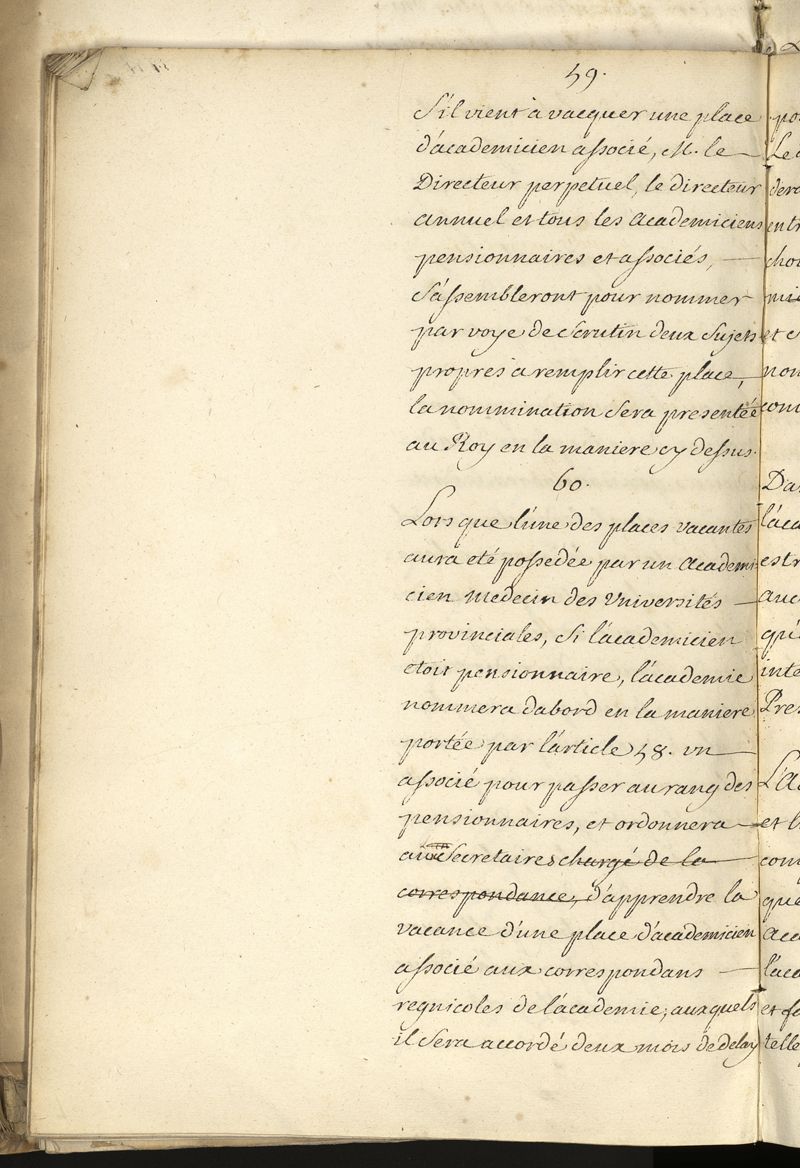 59.
S'il vient à vacquer une place
d'academicien associé, M. le
Directeur perpetuel, le directeur
annuel et tous les Academiciens
pensionnaires et associés,
S'assembleront pour nommer
par voye de Scrutin deux Sujets
propres a remplir cette place,
la nommination Sera presentéé
au Roy en la maniere cy dessus.
60.
Lors que l'une des places vacantes
aura eté possedée par un Academi-
cien Medecin des Vniversités
provinciales, Si l'academicien
etoit pensionnaire, l'academie
nommera dabord en la maniere
portée par l'article 58. vn
associé pour passer au rang des
pensionnaires, et ordonnera
Secretaires chargé de la
correspondance, d'apprendre la
vacance d'une place d'academicien
associé aux correspondans
regnicoles de l'academie, auxquels
il Sera accordé deux mois de delay